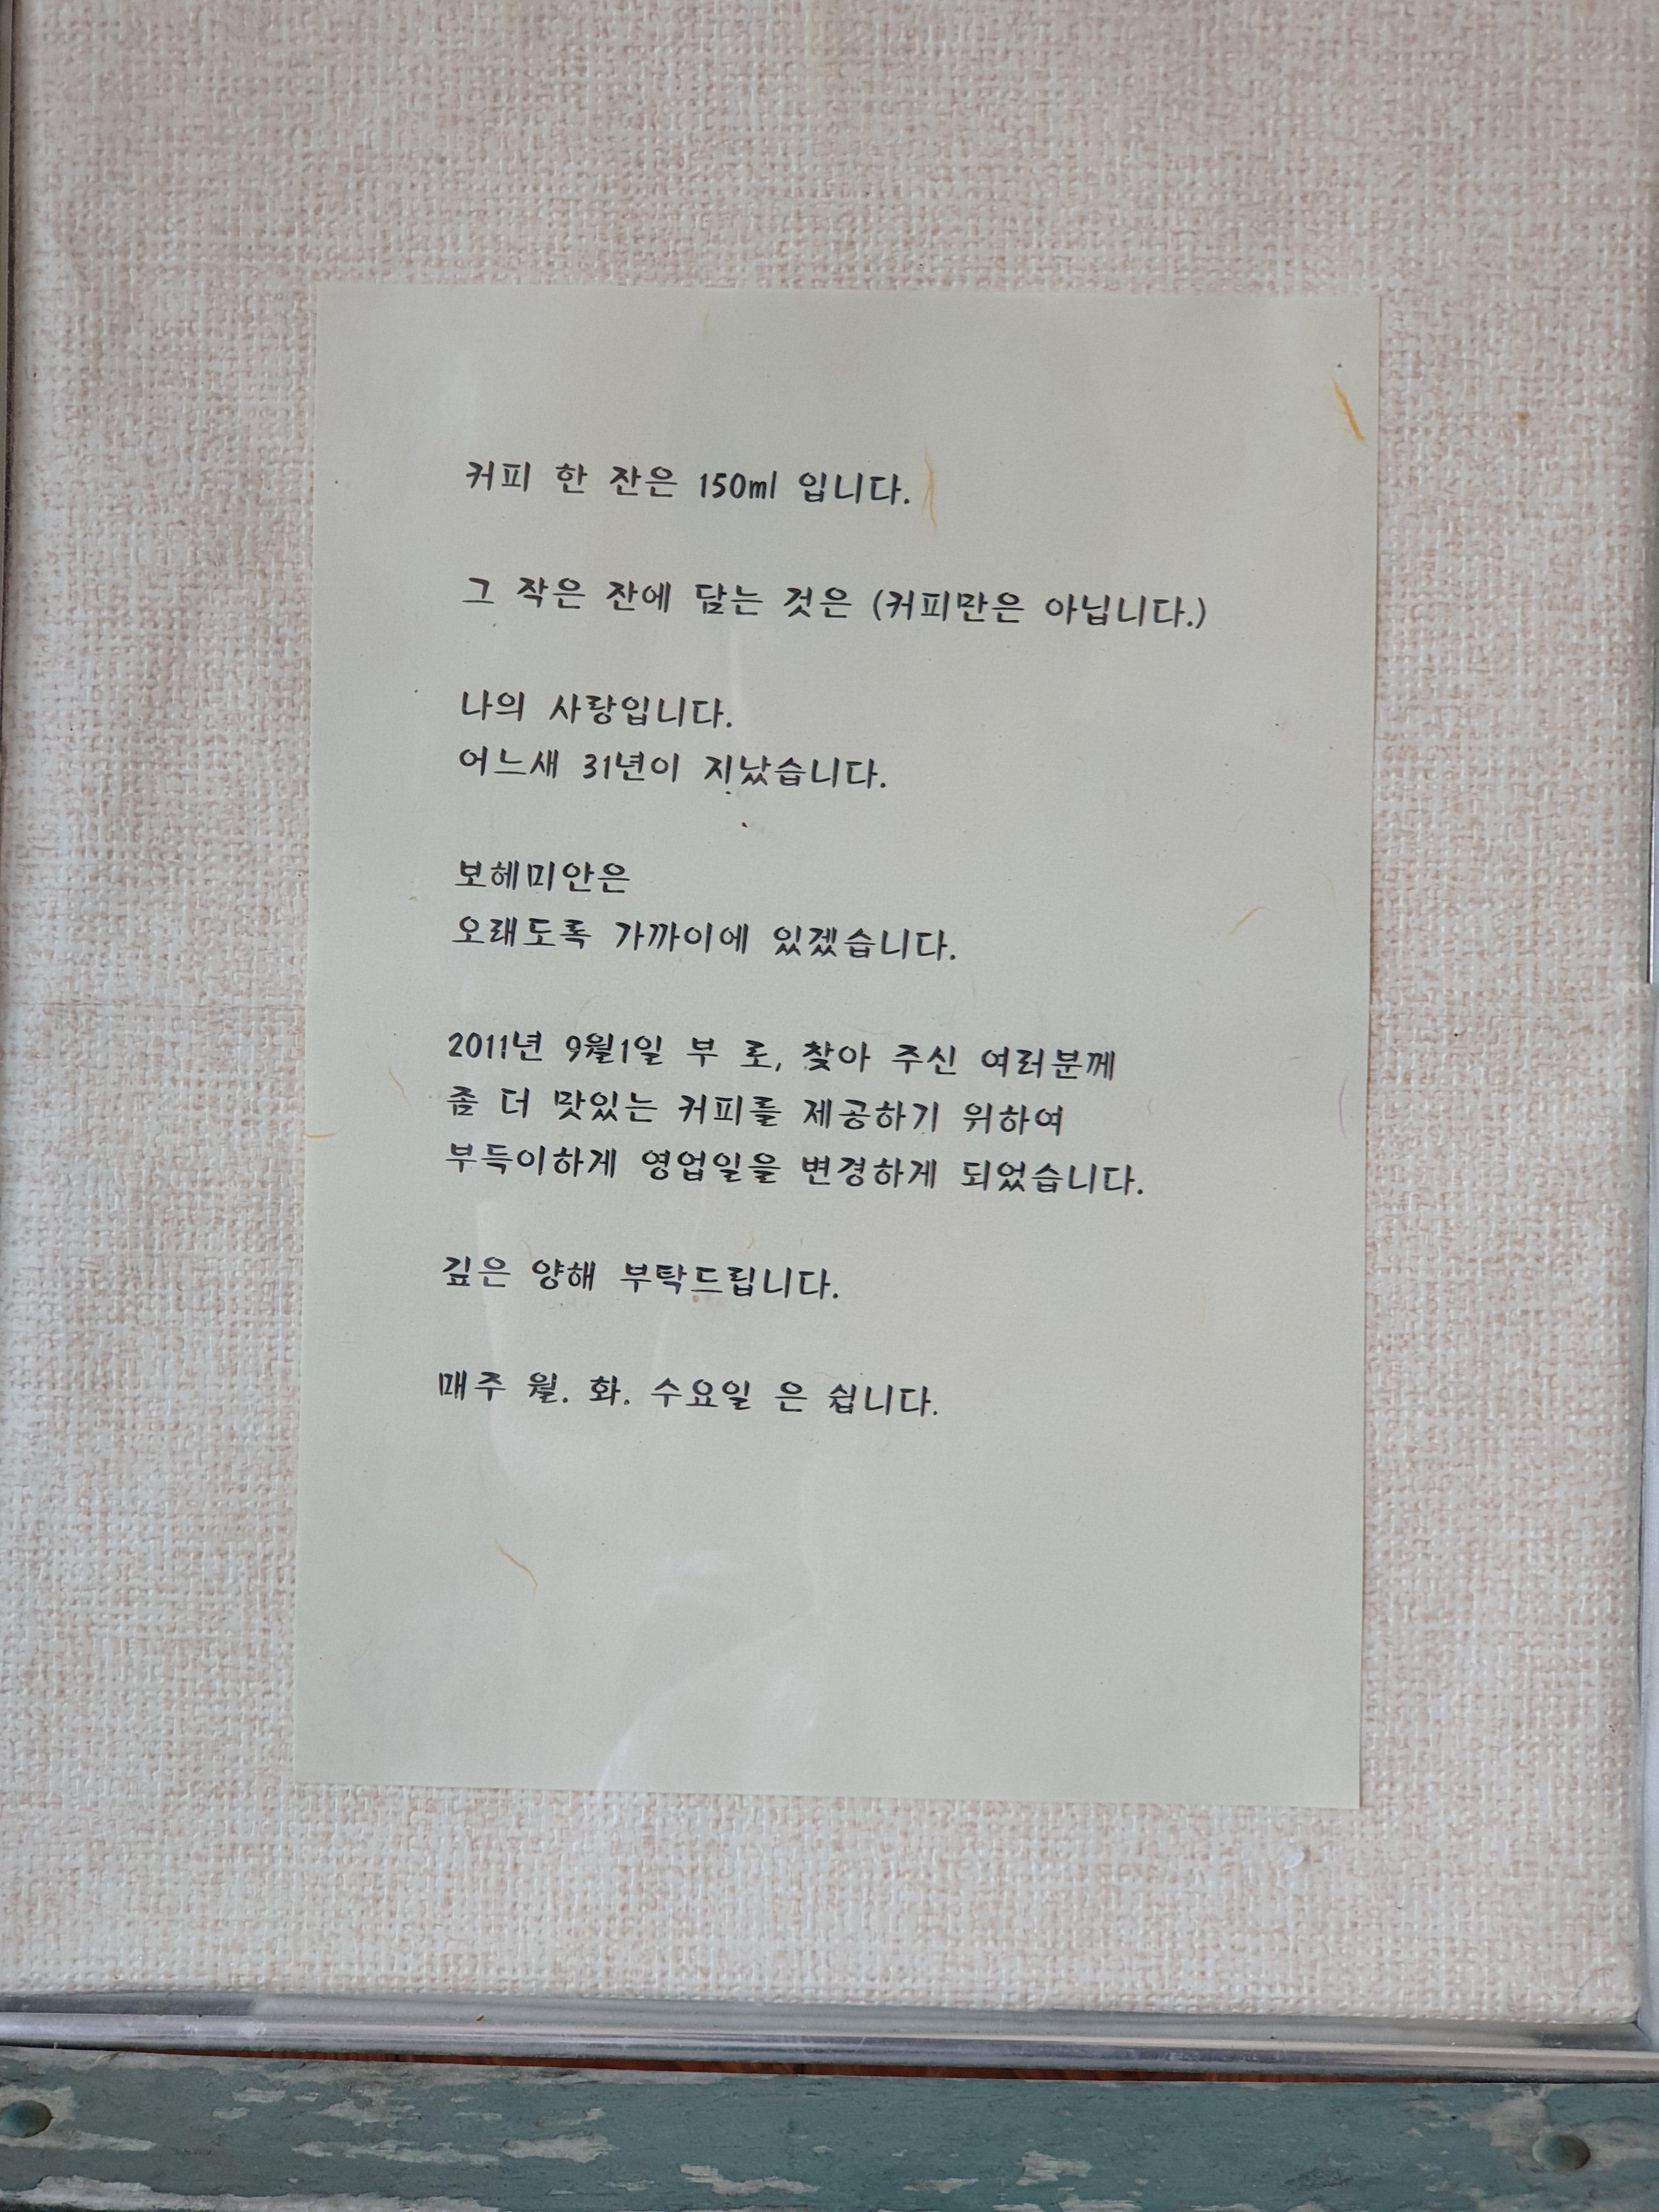 커피 한 잔은 150ml 입니다.
그 작은 잔에 담는 것은 (커피만은 아닙니다.)
나의 사랑입니다.
어느새 31년이 지났습니다.
보헤미안은
오래도록 가까이에 있겠습니다.
2011년 9월1일 부 로, 찾아 주신 여러분께
좀 더 맛있는 커피를 제공하기 위하여
부득이하게 영업일을 변경하게 되었습니다.
깊은 양해 부탁드립니다.
매주 월. 화. 수요일 은 쉽니다.